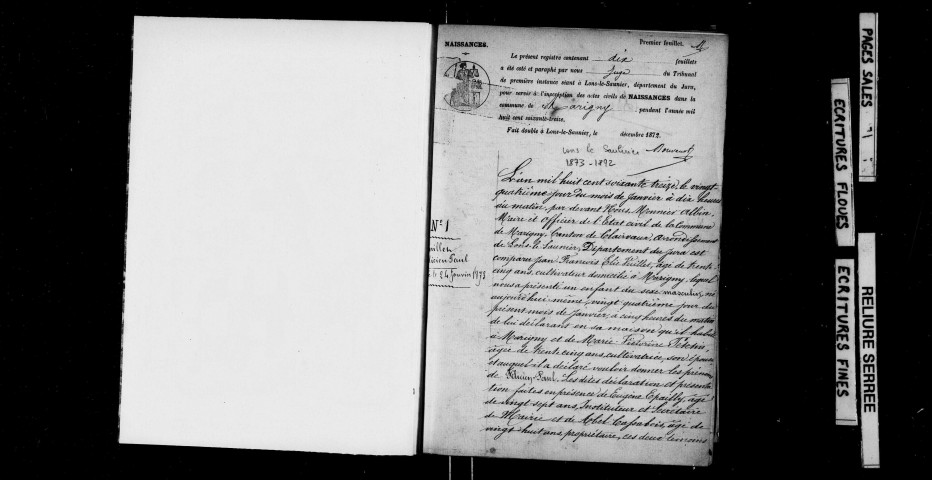 NAISSANCES.
Premier feuillet.
Le présent registre contenant dix feuillets
a été coté et paraphé par nous Juge du Tribunal
de première instance séant à Lons-le-Saunier, département du Jura,
pour servir à l'inscription des actes civils de NAISSANCES dans la
commune de Marigny, pendant l'année mil
huit cent soixante-treize.
Fait double à Lons-le-Saunier, le décembre 1872.
Lons le Saulnier
1873-1892
L'an mil huit cent soixante treize, le vingt
quatrième jour du mois de janvier à dix heures
du matin, par devant Nous, Monnier Albin,
Maire et Officier de l'Etat civil de la Commune
de Marigny, Canton de Clairvaux, Arrondissement
de Lons le Saunier, Département du Jura est
comparu François Elie Vuillet, âgé de trente
cinq ans, cultivateur domicilié à Marigny, lequel
nous a présenté un enfant du sexe masculin, né
aujourd'hui même, vingt quatrième jour du
présent mois de janvier, à cinq heures du matin
de lui déclarant en sa maison qu'il habite
à Marigny et de Marie Victorine
âgée de trente cinq ans, cultivatrice, son épouse
et auquel il a déclaré vouloir donner les prénoms
de Paul. Les dites déclaration et présenta
tion faites en présence de Eugène Epailly, âgé
de vingt-sept ans, Instituteur et Secrétaire
de Mairie et de Abel âgé de
vingt huit ans, propriétaire, ces deux témoins
N° 1
Paul
24 Janvier 1873
PAGES SALES
ECRITURES FLOUES
ECRITURES FINES
RELIURE SERREE